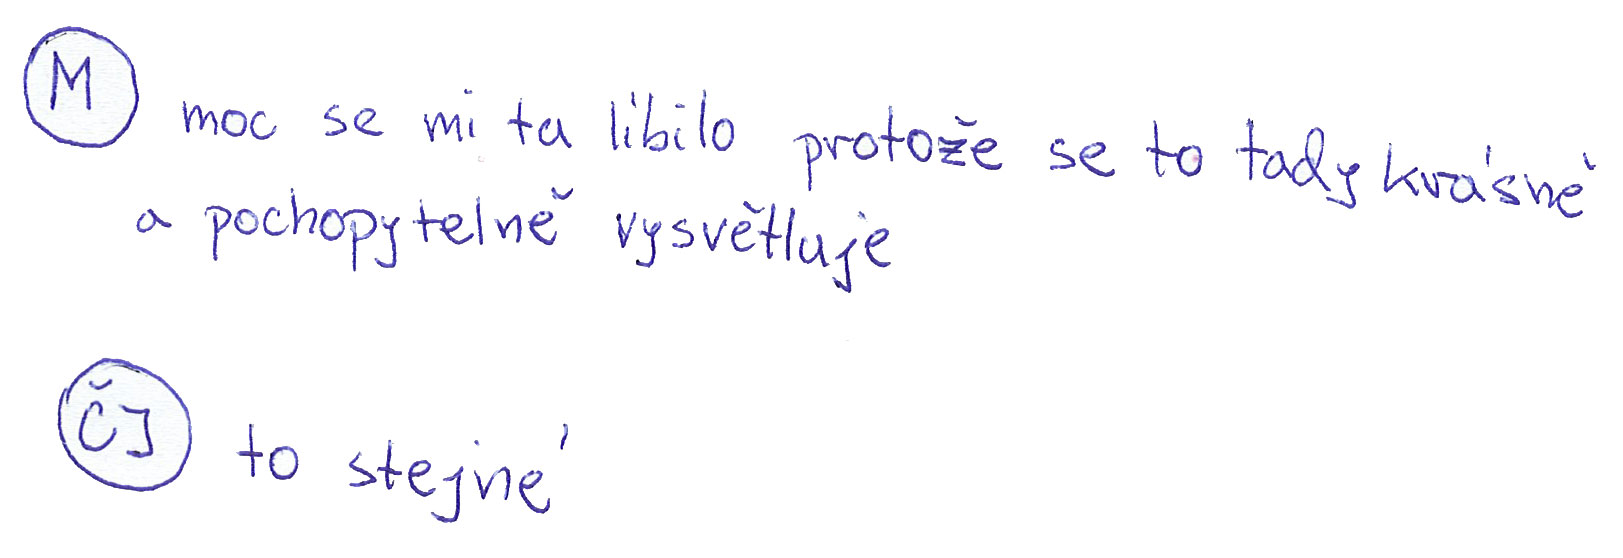 M moc se mi ta líbilo protože se to tady krásně
a pochopytelně vysvětluje
ČJ to stejné